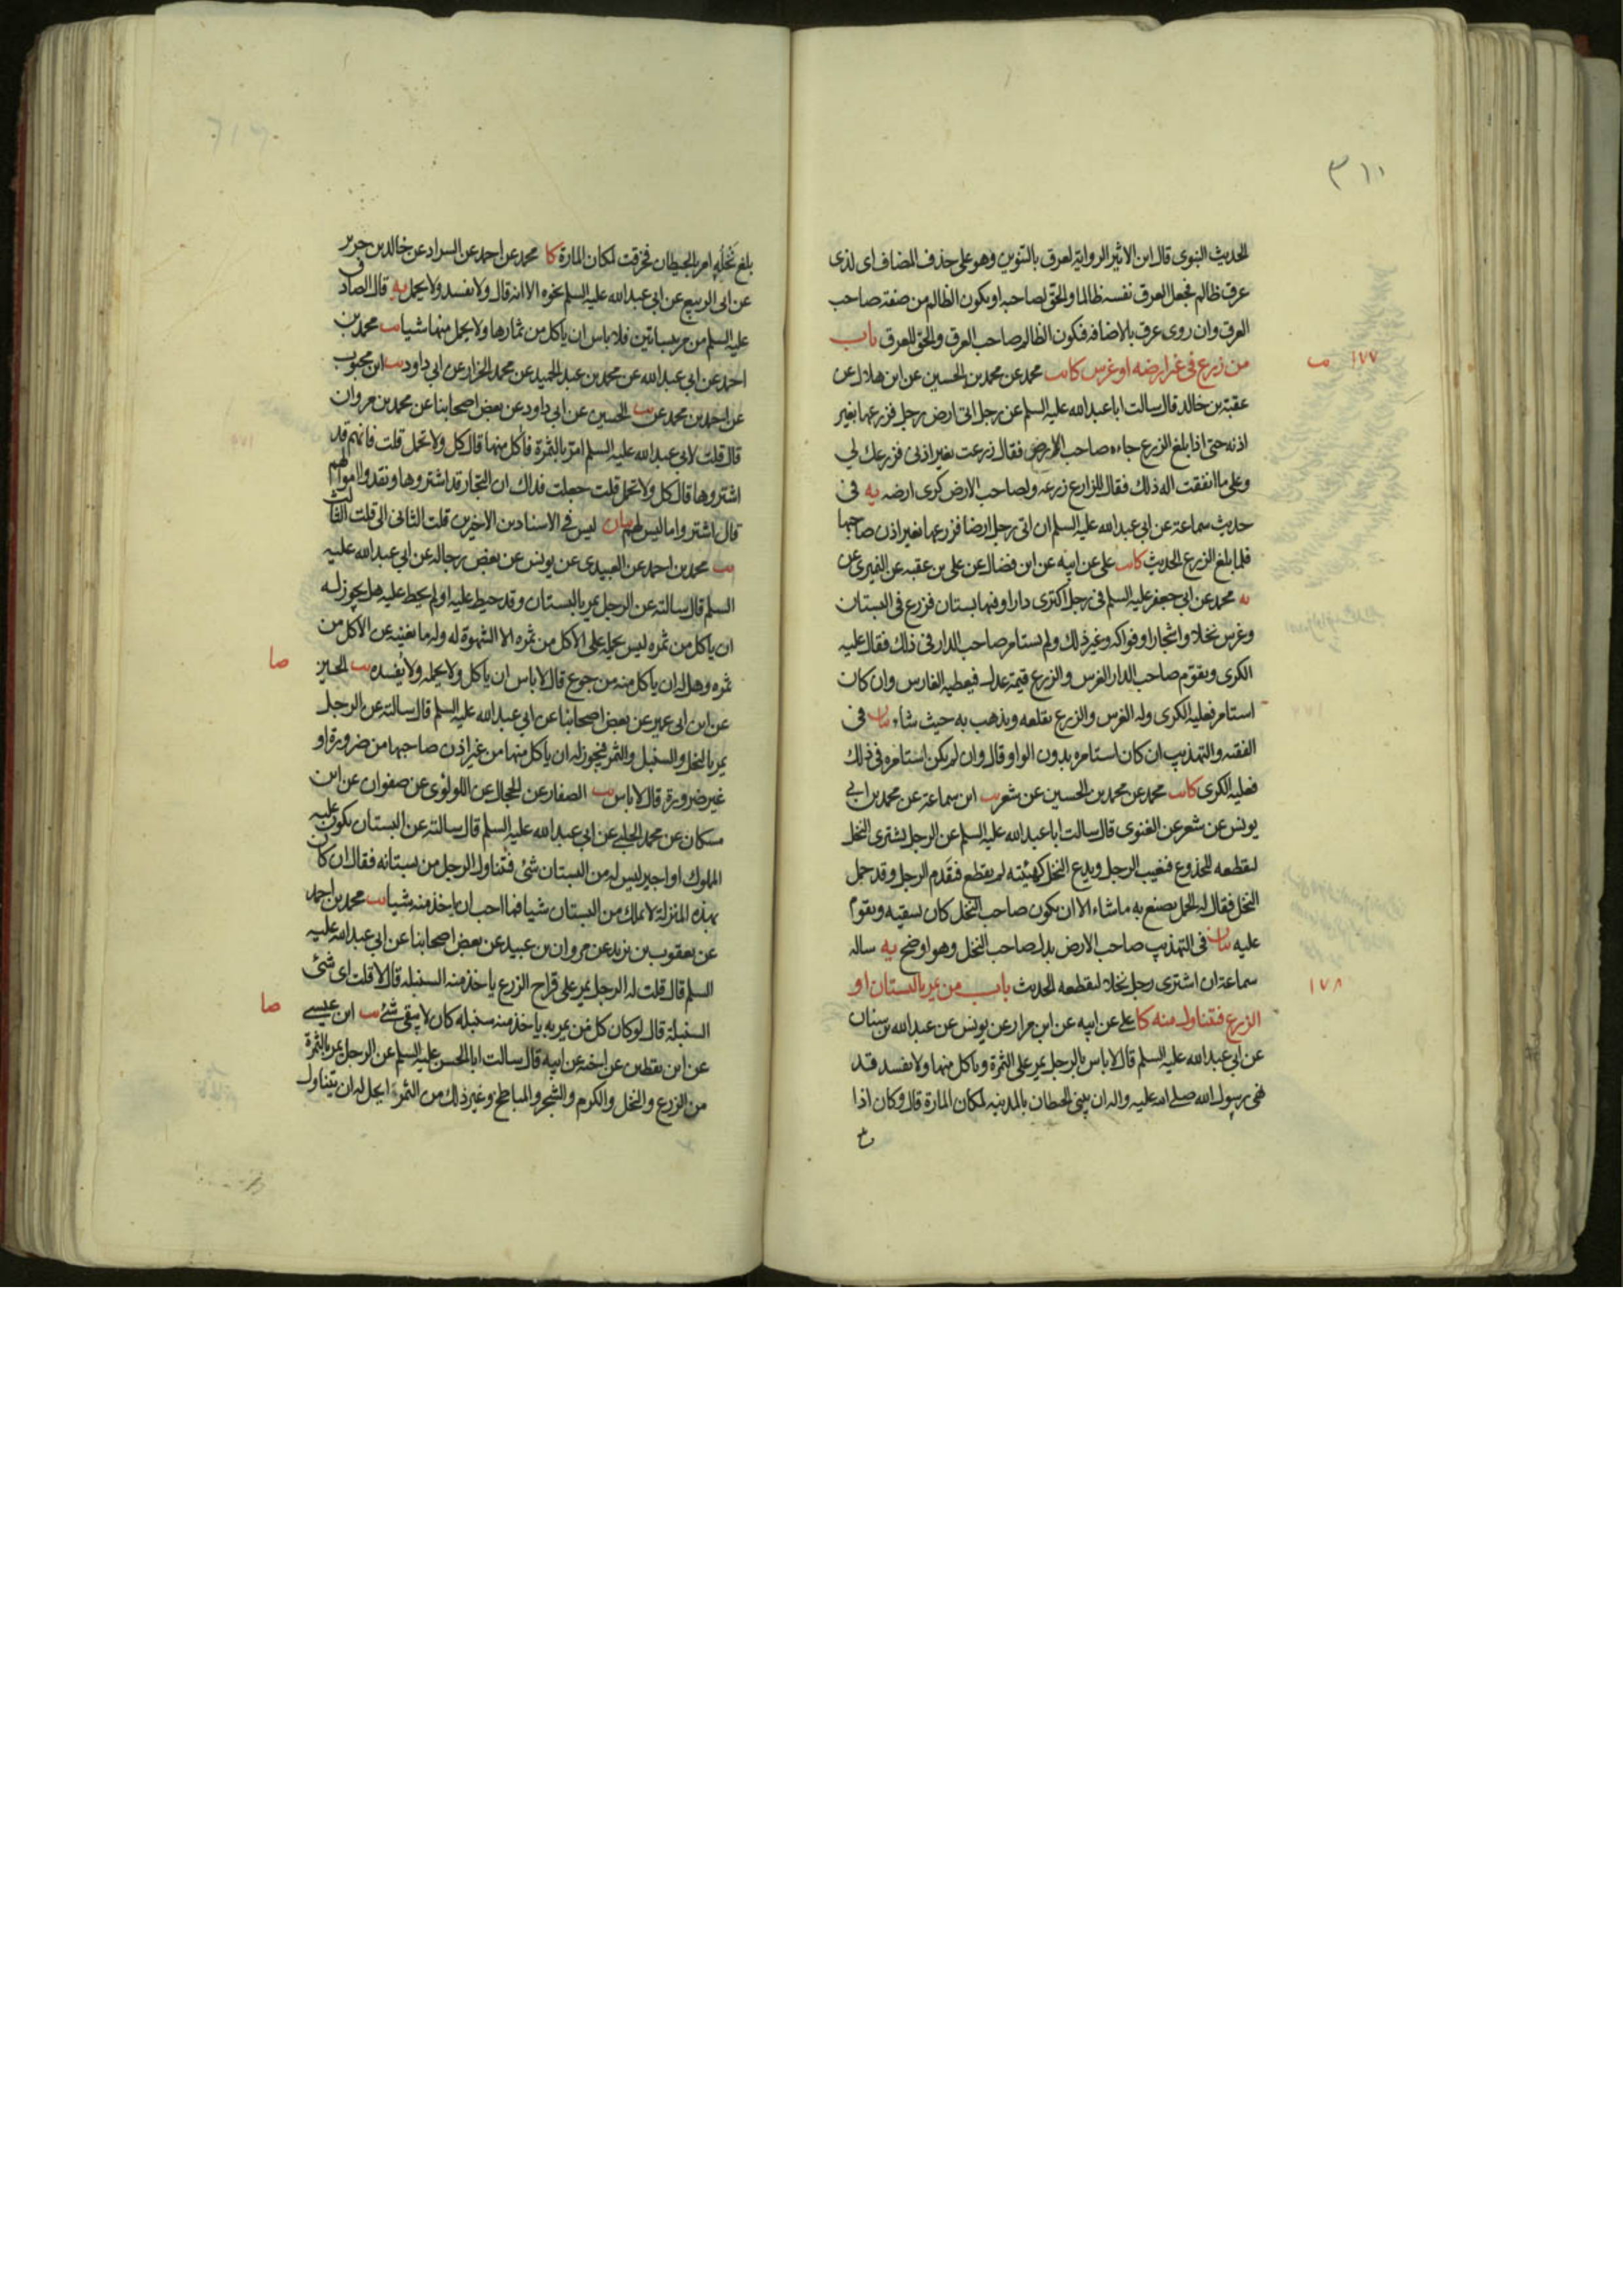 ٣١١
الحديث النبوى قال ابن الاثير الرواية لعرق بالتنوين وهو على حذف المضاف اى لذى
عرق ظالم فجعل العرق نفسه ظالما والحق لصاحبه او يكون الظالم من صفة صاحب
العرق وان روى عرق بالاضافه فيكون الظالم صاحب العرق والحق للعرق باب
١٧٧
من زرع فى غير ارضه او غرس كا يب محمد عن محمد بن الحسين عن ابن هلال عن
عقبة بن خالد قال سالت ابا عبد الله عليه السلم عن رجل اتى ارض رجل فزرعها بغير
اذنه حتى اذا بلغ الزرع جاءه صاحب الارض فقال زرعت بغير اذنى فزرعك لي
وعلى ما انفقت اله ذلك فقال للزارع زرعه ولصاحب الارض كرى ارضه يه فى
حديث سماعة عن ابي عبد الله عليه السلم ان اتى رجل ارضا فزرعها بغير اذن صاحبها
فلما بلغ الزرع الحديث كا يب على عن ابيه عن ابن فضال عن على بن عقبه عن النميرى عن
يه محمد عن ابي جعفر عليه السلم فى رجل اكترى دارا وفيها بستان فزرع فى البستان
وغرس نخلا واشجارا وفواكه وغير ذلك ولم يستامر صاحب الدار فى ذلك فقال عليه
الكرى ويقوم صاحب الدار الغرس والزرع قيمة عدل فيعطيه الغارس وان كان
استامر فعليه الكرى وله الغرس والزرع يقلعه ويذهب به حيث شاء بيان فى
الفقيه والتهذيب ان كان استامره بدون الواو قال وان لم يكن استامره فى ذلك
فعليه الكرى كا يب محمد عن محمد بن الحسين عن شعر يب ابن سماعة عن محمد بن ابي
يونس عن شعر عن الغنوى قال سالت ابا عبد الله عليه السلم عن الرجل يشترى النخل
ليقطعه للجذوع فيغيب الرجل ويدع النخل كهيئته لم يقطع فيقدم الرجل وقد حمل
النخل فقال له الحمل يصنع به ما شاء الا ان يكون صاحب النخل كان يسقيه ويقوم
عليه بيان فى التهذيب صاحب الارض بدل صاحب النخل وهو اوضح يه ساله
سماعة ان اشترى رجل نخلا ليقطعه الحديث باب من يمر بالبستان او
١٧٨
الزرع فيتناول منه كا على عن ابيه عن ابن مرار عن يونس عن عبد الله بن سنان
عن ابي عبد الله عليه السلم قال لا باس بالرجل يمر على الثمرة وياكل منها ولا يفسد قد
نهى رسول الله صلى الله عليه واله ان يبنى الحيطان بالمدينه لمكان المارة قال وكان اذا
بلغ نخله امر بالحيطان فخرقت لمكان المارة كا محمد عن احمد عن السراد عن خالد بن جرير
عن ابى الربيع عن ابي عبد الله عليه السلم نحوه الا انه قال ولا يفسد ولا يحمل يه قال الصادق
عليه السلم من مر ببساتين فلا باس ان ياكل من ثمارها ولا يحمل منها شيا يب محمد بن
احمد عن ابي عبد الله عن محمد بن عبد الحميد عن محمد الخزار عن ابي داود يب ابن محبوب
عن احمد بن محمد عن يب الحسين عن ابى داود عن بعض اصحابنا عن محمد بن مروان
قال قلت لابى عبد الله عليه السلم امر بالثمرة فآكل منها قال كل ولا تحمل قلت فانهم قد
اشتروها قال كل ولا تحمل قلت جعلت فداك ان التجار قد اشتروها ونقدوا اموالهم
قال اشتروا ما ليس لهم بيان ليس فى الاسنادين الاخيرين قلت الثانى الى قلت الثالث
يب محمد بن احمد عن العبيدى عن يونس عن بعض رجاله عن ابي عبد الله عليه
السلم قال سالته عن الرجل يمر بالبستان وقد حيط عليه او لم يحط عليه هل يجوز له
ان ياكل من ثمره ليس يحمله على الاكل من ثمره الا الشهوة له وله ما يغنيه عن الاكل من
صا
ثمره وهل له ان ياكل منه من جوع قال لا باس ان ياكل ولا يحمله ولا يفسده يب الحسين
عن ابن ابى عمير عن بعض اصحابنا عن ابي عبد الله عليه السلم قال سالته عن الرجل
يمر بالنخل والسنبل والثمر فيجوز له ان ياكل منها من غير اذن صاحبها من ضرورة او
غير ضرورة قال لا باس يب الصفار عن الحجال عن اللولوى عن صفوان عن ابن
مسكان عن محمد الحلبى عن ابي عبد الله عليه السلم قال سالته عن البستان يكون عليه
المملوك او اجير ليس له من البستان شئ فيتناول الرجل من بستانه فقال ان كان
بهذه المنزلة لا يملك من البستان شيا فما احب ان ياخذ منه شيا يب محمد بن احمد
عن يعقوب بن يزيد عن مروان بن عبيد عن بعض اصحابنا عن ابي عبد الله عليه
السلم قال قلت له الرجل يمر على قراح الزرع ياخذ منه السنبله قال لا قلت اى شئ
صا
السنبلة قال لو كان كل من يمر به ياخذ منه سنبله كان لا يبقى شئ يب ابن عيسى
عن ابن يقطين عن اخيه عن ابيه قال سالت ابا الحسن عليه السلم عن الرجل يمر بالثمرة
من الزرع والنخل والكرم والشجر والمباطخ وغير ذلك من الثمر ايحل له ان يتناول